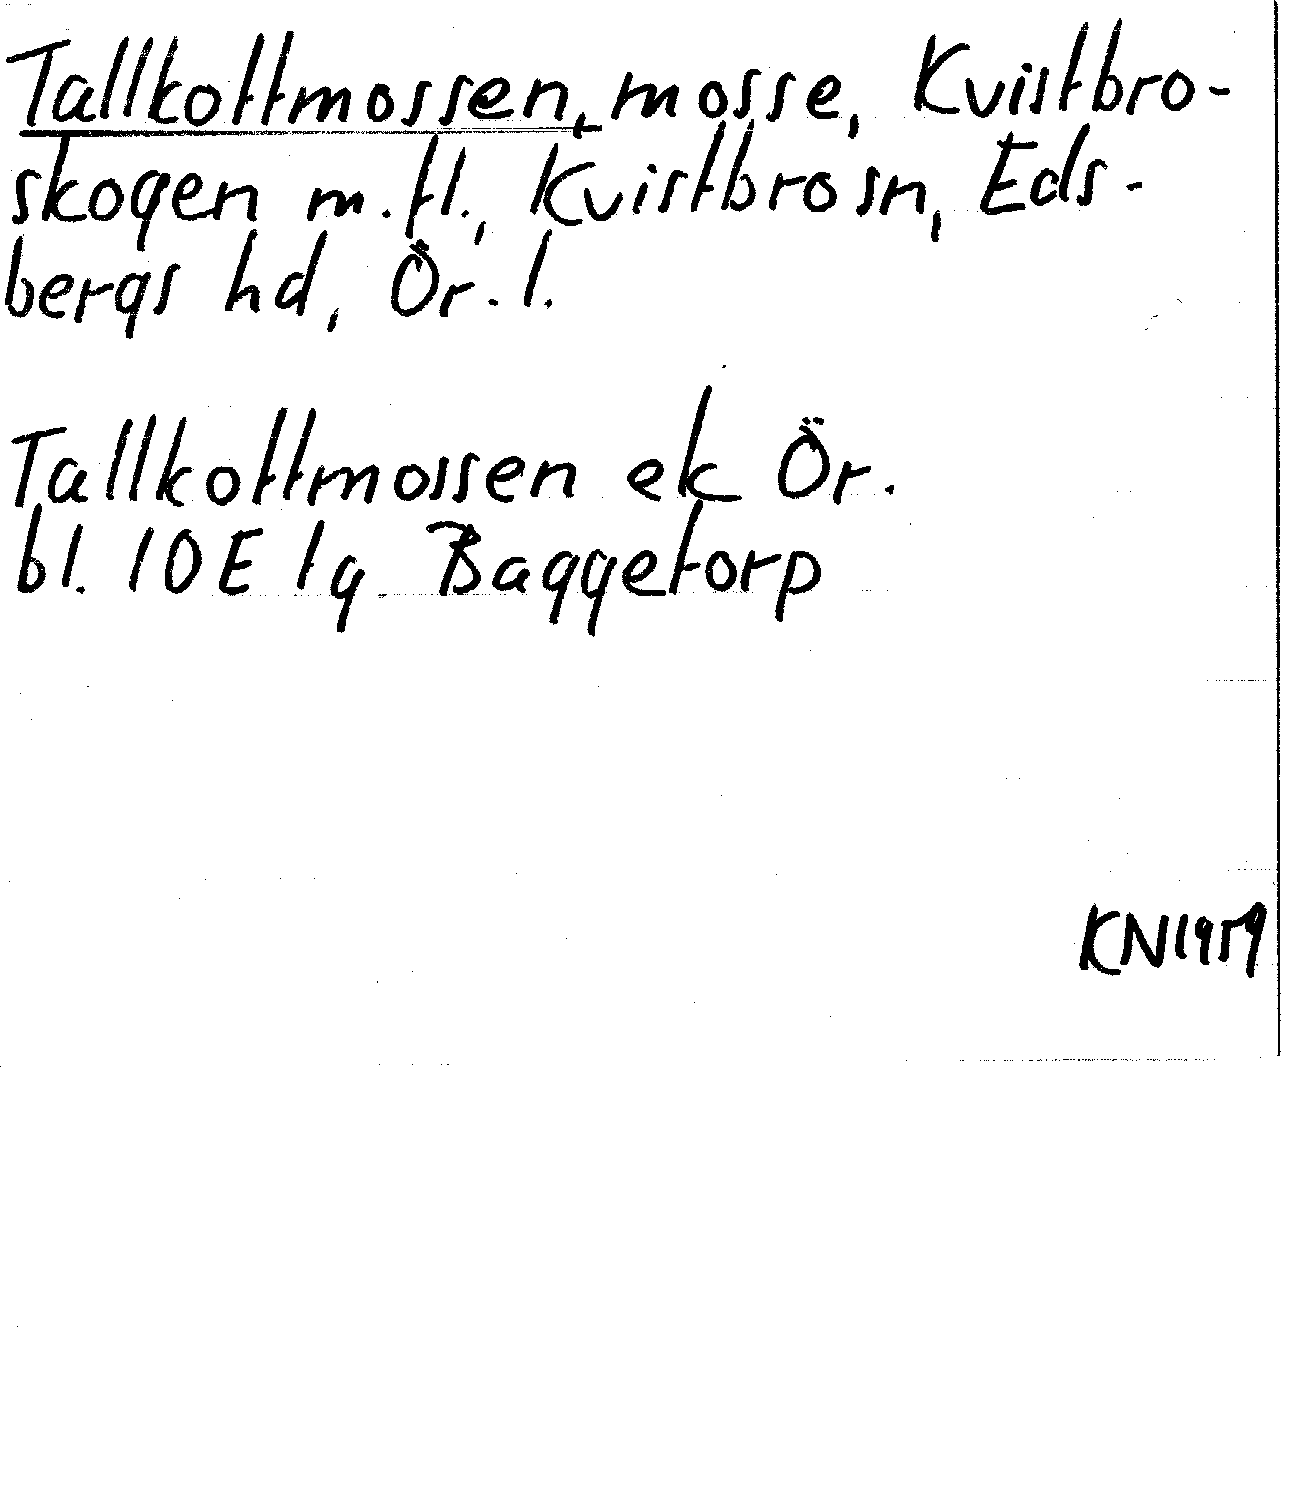 Tallkottmossen, mosse, Kvistbro-
skogen m.fl., Kvistbro sn, Eds-
bergs hd, Ör. l.
Tallkottmossen ek Ör.
bl. 10E 1g Baggetorp
KN1959